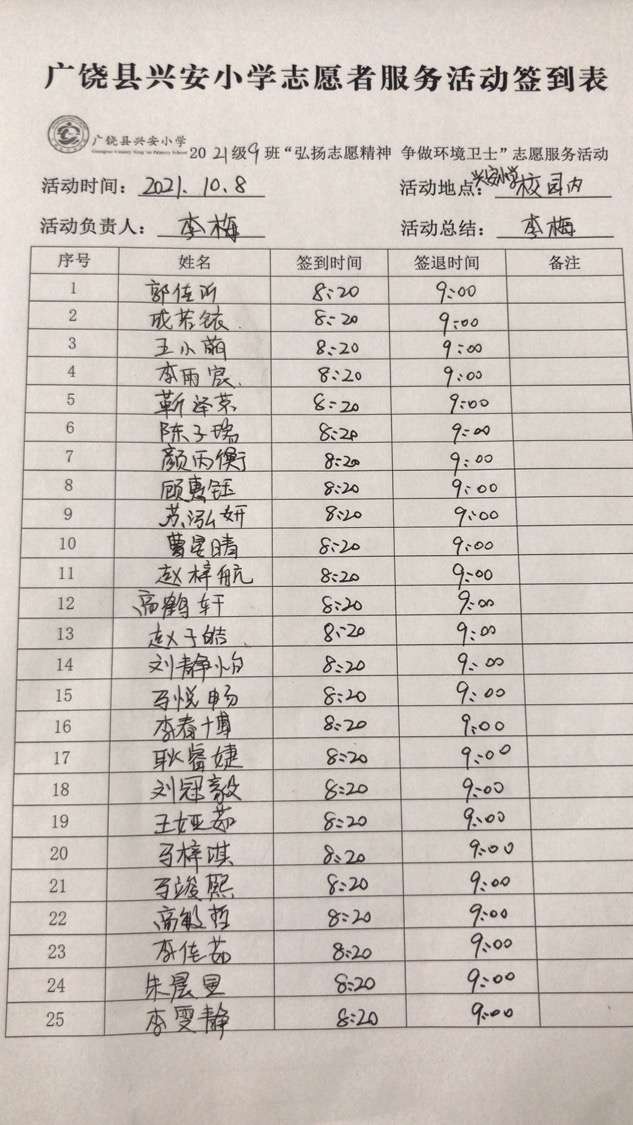 广饶县兴安小学志愿者服务活动签到表
广饶县兴安小学
2021级9班“弘扬志愿精神 争做环境卫士”志愿服务活动
活动时间：2021.10.8 活动地点：兴安小学校园内
活动负责人：李梅 活动总结：李梅
序号 姓名 签到时间 签退时间 备注
1 郭佳昕 8:20 9:00
2 成若铱 8:20 9:00
3 王小萌 8:20 9:00
4 李雨宸 8:20 9:00
5 靳泽荣 8:20 9:00
6 陈子瑞 8:20 9:00
7 颜丙衡 8:20 9:00
8 顾惠钰 8:20 9:00
9 苏泓妍 8:20 9:00
10 曹星晴 8:20 9:00
11 赵梓航 8:20 9:00
12 高鹤轩 8:20 9:00
13 赵子皓 8:20 9:00
14 刘静怡 8:20 9:00
15 马悦畅 8:20 9:00
16 李春博 8:20 9:00
17 耿睿婕 8:20 9:00
18 刘冠毅 8:20 9:00
19 王娅茹 8:20 9:00
20 马梓淇 8:20 9:00
21 马竣熙 8:20 9:00
22 高敏哲 8:20 9:00
23 李佳茹 8:20 9:00
24 朱晨昱 8:20 9:00
25 李雯静 8:20 9:00